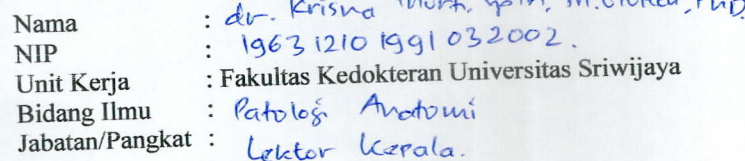 Nama : dr. Krisna Murti, SpPA, M.Biotech, PhD.
NIP : 19631210 1991 032002.
Unit Kerja : Fakultas Kedokteran Universitas Sriwijaya
Bidang Ilmu : Patologi Anatomi
Jabatan/Pangkat : Lektor Kepala.